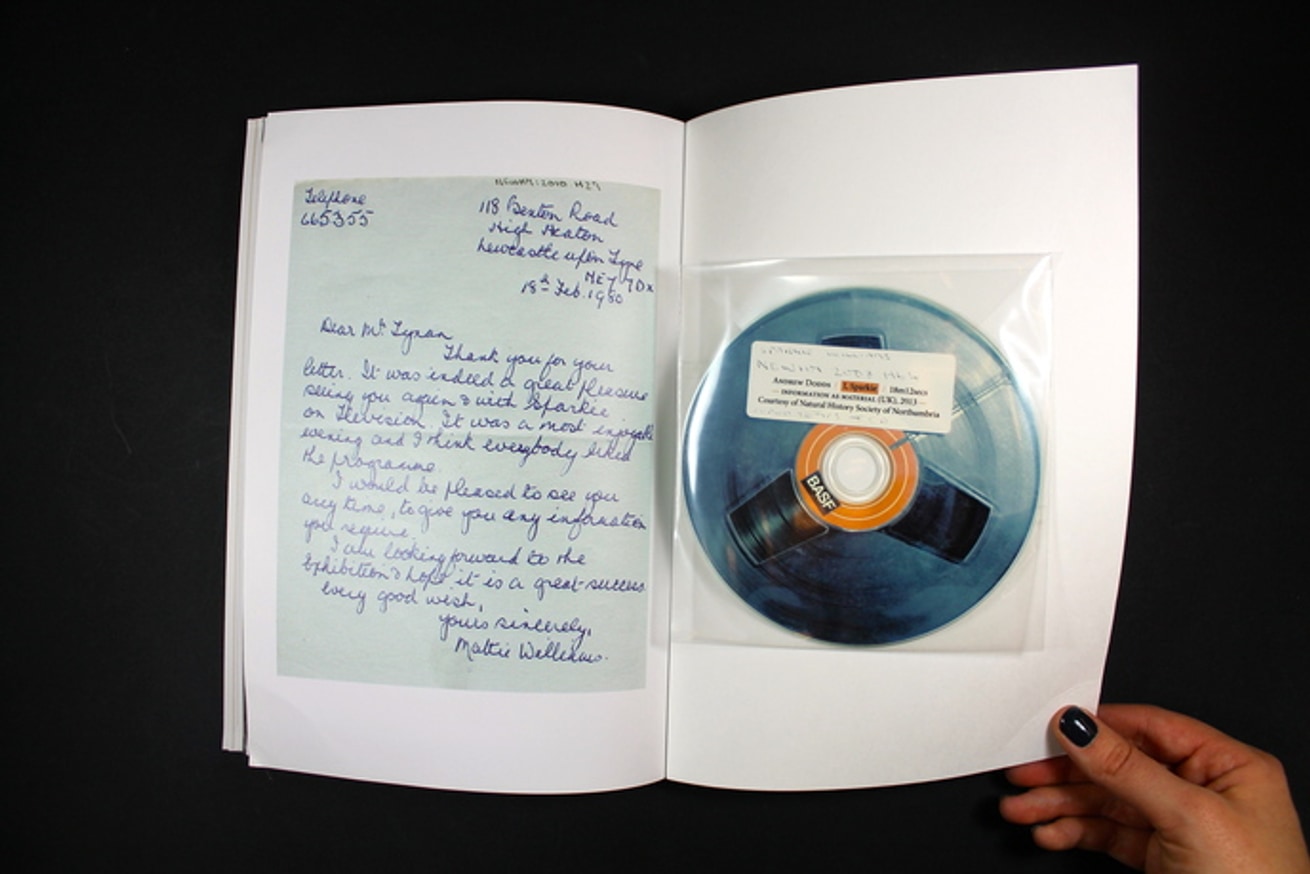 NEWHM:2010.H27
Telephone
665355
118 Benton Road
High Heaton
Newcastle upon Tyne
NE7 7DX
18th Feb. 1980
Dear Mr Tynan
Thank you for your
letter. It was indeed a great pleasure
seeing you again & with Sparkie
on Television. It was a most enjoyable
evening and I think everybody liked
the programme.
I would be pleased to see you
any time, to give you any information
you require.
I am looking forward to the
Exhibition & hope it is a great success
Every good wish,
yours sincerely,
Mattie Williams.
ANDREW DODDS I, Sparkie 18m12secs
— INFORMATION AS MATERIAL (UK), 2013 —
Courtesy of Natural History Society of Northumbria
BASF